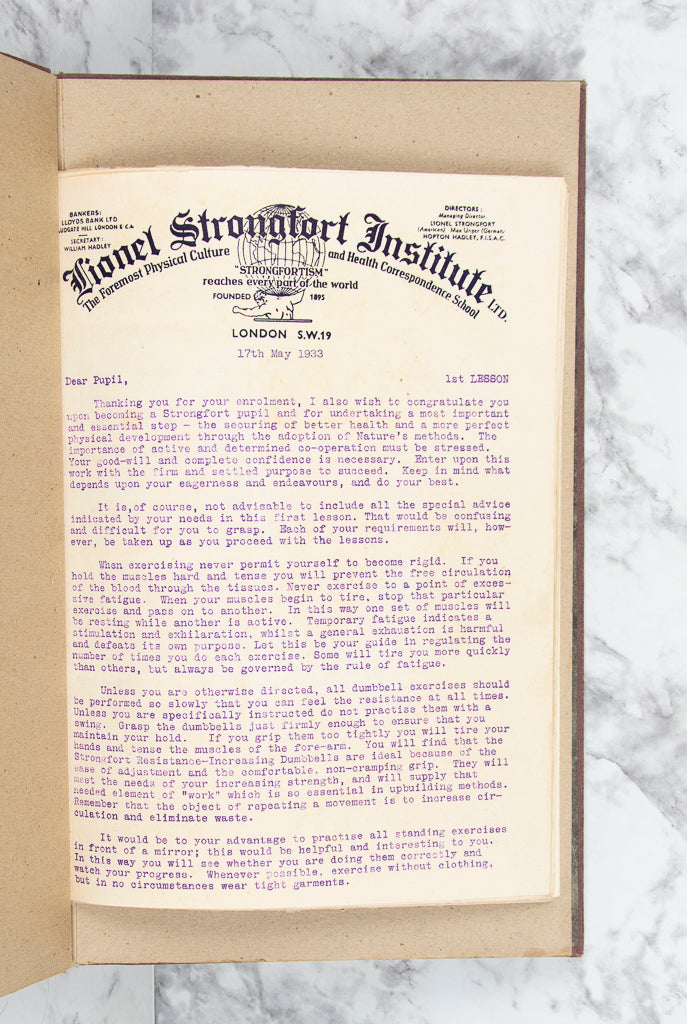 BANKERS:
LLOYDS BANK LTD
LUDGATE HILL LONDON E.C.4.
SECRETARY:
WILLIAM HADLEY
DIRECTORS:
Managing Director.
LIONEL STRONGFORT
(American) Max Unger (German)
HOPTON HADLEY, F.I.S.A.C.
Lionel Strongfort Institute LTD.
The Foremost Physical Culture and Health Correspondence School
"STRONGFORTISM"
reaches every part of the world
FOUNDED 1895
LONDON S.W.19
17th May 1933
Dear Pupil, 1st LESSON
Thanking you for your enrolment, I also wish to congratulate you
upon becoming a Strongfort pupil and for undertaking a most important
and essential step - the securing of better health and a more perfect
physical development through the adoption of Nature's methods. The
importance of active and determined co-operation must be stressed.
Your good-will and complete confidence is necessary. Enter upon this
work with the firm and settled purpose to succeed. Keep in mind what
depends upon your eagerness and endeavours, and do your best.
It is,of course, not advisable to include all the special advice
indicated by your needs in this first lesson. That would be confusing
and difficult for you to grasp. Each of your requirements will, how-
ever, be taken up as you proceed with the lessons.
When exercising never permit yourself to become rigid. If you
hold the muscles hard and tense you will prevent the free circulation
of the blood through the tissues. Never exercise to a point of exces-
sive fatigue. When your muscles begin to tire, stop that particular
exercise and pass on to another. In this way one set of muscles will
be resting while another is active. Temporary fatigue indicates a
stimulation and exhilaration, whilst a general exhaustion is harmful
and defeats its own purpose. Let this be your guide in regulating the
number of times you do each exercise. Some will tire you more quickly
than others, but always be governed by the rule of fatigue.
Unless you are otherwise directed, all dumbbell exercises should
be performed so slowly that you can feel the resistance at all times.
Unless you are specifically instructed do not practise them with a
swing. Grasp the dumbbells just firmly enough to ensure that you
maintain your hold. If you grip them too tightly you will tire your
hands and tense the muscles of the fore-arm. You will find that the
Strongfort Resistance-Increasing Dumbbells are ideal because of the
ease of adjustment and the comfortable, non-cramping grip. They will
meet the needs of your increasing strength, and will supply that
needed element of "work" which is so essential in upbuilding methods.
Remember that the object of repeating a movement is to increase cir-
culation and eliminate waste.
It would be to your advantage to practise all standing exercises
in front of a mirror; this would be helpful and interesting to you.
In this way you will see whether you are doing them correctly and
watch your progress. Whenever possible, exercise without clothing,
but in no circumstances wear tight garments.